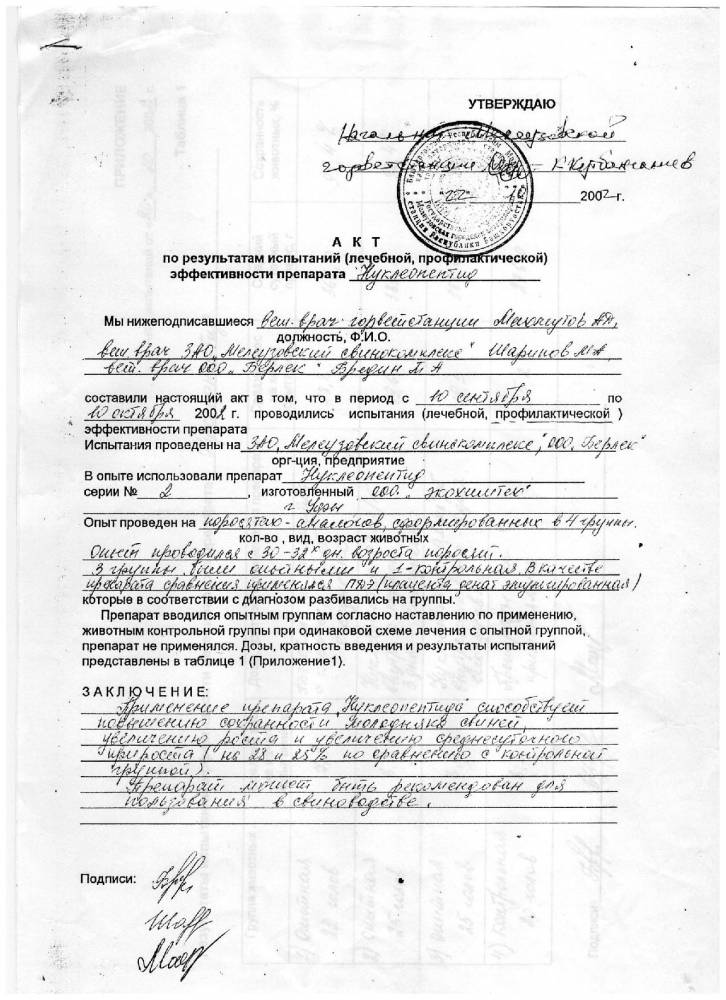 УТВЕРЖДАЮ
Начальник Мелеузовской
горветстанции
"22" 10 2002 г.
А К Т
по результатам испытаний (лечебной, профилактической)
эффективности препарата Нуклеопептид
Мы нижеподписавшиеся вет. врач горветстанции
должность, Ф.И.О.
вет. врач ЗАО „Мелеузовский свинокомплекс" Шарипов М.А,
вет. врач ООО „Берлек"
составили настоящий акт в том, что в период с 10 сентября по
10 октября 2002 г. проводились испытания (лечебной, профилактической )
эффективности препарата
Испытания проведены на ЗАО „Мелеузовский свинокомплекс", ООО „Берлек"
орг-ция, предприятие
В опыте использовали препарат Нуклеопептид
серии № 2 , изготовленный ООО „Экохимтех"
г. Уфы
Опыт проведен на поросятах-аналогов, сформированных в 4 группы.
кол-во , вид, возраст животных
Опыт проводился с 30-32х дн. возроста поросят.
3 группы были опытными и 1-контрольная. В качестве
препарата сравнения применялся ПДЭ (плацента денат. эмульгированная)
которые в соответствии с диагнозом разбивались на группы.
Препарат вводился опытным группам согласно наставлению по применению,
животным контрольной группы при одинаковой схеме лечения с опытной группой,
препарат не применялся. Дозы, кратность введения и результаты испытаний
представлены в таблице 1 (Приложение1).
З А К Л Ю Ч Е Н И Е:
Применение препарата „Нуклеопептид" способствует
повышению сохранности молодняка свиней,
увеличению роста и увеличению среднесуточного
прироста ( на 28 и 25% по сравнению с контрольной
группой).
Препарат может быть рекомендован для
пользования в свиноводстве.
Подписи: